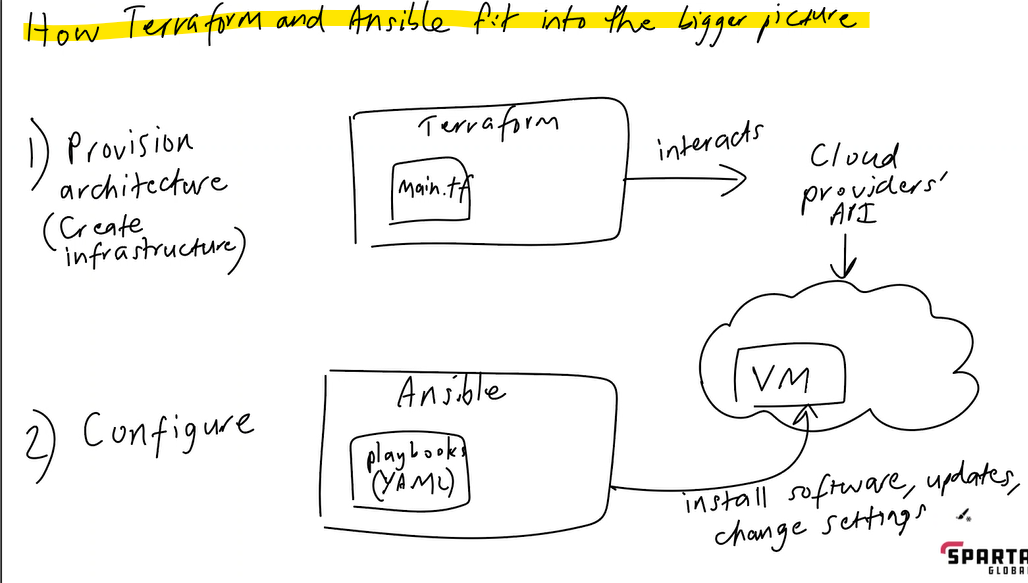 How Terraform and Ansible fit into the bigger picture
1) Provision
architecture
(Create
infrastructure)
Terraform
main.tf
interacts
Cloud
providers'
API
VM
2) Configure
Ansible
playbooks
(YAML)
install software, updates,
change settings
SPARTA
GLOBAL